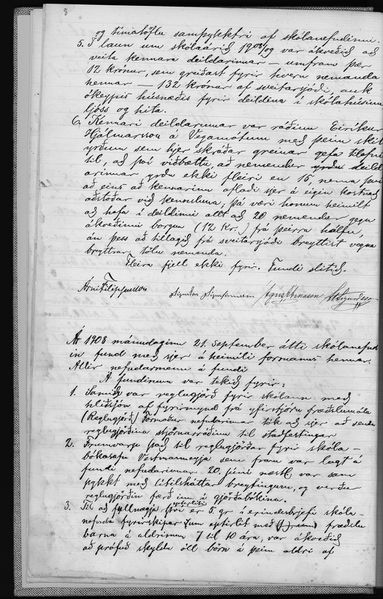 og tímatöflu samþykktri af skólanefndinni.
5. Í laun um skólaárið 1908/09 var ákveðið að
veita kennara deildarinnar — umfram þær
12 krónur, sem greiðast fyrir hvern nemanda
hennar — 132 krónur af sveitarsjóði, auk
ókeypis húsnæðis fyrir deildina í skólahúsinu
ljóss og hita.
6. Kennari deildarinnar var ráðinn Eiríkur
Hjálmarsson á Vegamótum með þeim skil
yrðum sem hjer skráðar greinar gefa tilefni
til, að því viðbættu, að nemendur yrðu
arinnar yrðu ekki fleiri en 15 nema
að eins að kennarinn aflaði sjer á eigin kostnað
aðstoðar við kennsluna, þá væri honum heimilt
að hafa í deildinni allt að 20 nemendur gegn
ákveðinni borgun (12 kr.) fyrir þeirra hálfu,
án þess að tillagið frá sveitarsjóði breyttist vegna
breyttrar tölu nemenda.
Fleira fjell ekki fyrir. Fundi slitið.
Árni Filippusson
Ár 1908 mánudaginn 21. september átti skólanefnd
in fund með sjer á heimili formanns hennar.
Allir nefndarmenn á fundi
Á fundinum var tekið fyrir:
1. Samið var reglugjörð fyrir skólann með
hliðsjón af fyrirmynd frá yfirstjórn fræðslumála
(Reglugjörð) Formaður nefndarinnar tók að sjer að senda
reglugjörðina stjórnarráðinu til staðfestingar
2. Frumvarp það til reglugjörðar fyrir skóla-
bókasafn Vestmannaeyja sem fram var lagt á
fundi nefndarinnar 20. júní næstl var sam-
þykkt með lítilsháttar breytingum, og verður
reglugjörðin færð inn í gjörðabókina.
3. Til að fullnægja því er 5. gr. í erindisbrjefi skóla
nefnda fyrirskipar um eptirlit með fræðslu
barna á aldrinum 7 til 10 ára, var ákveðið
að prófud skyldu öll börn á þeim aldri af